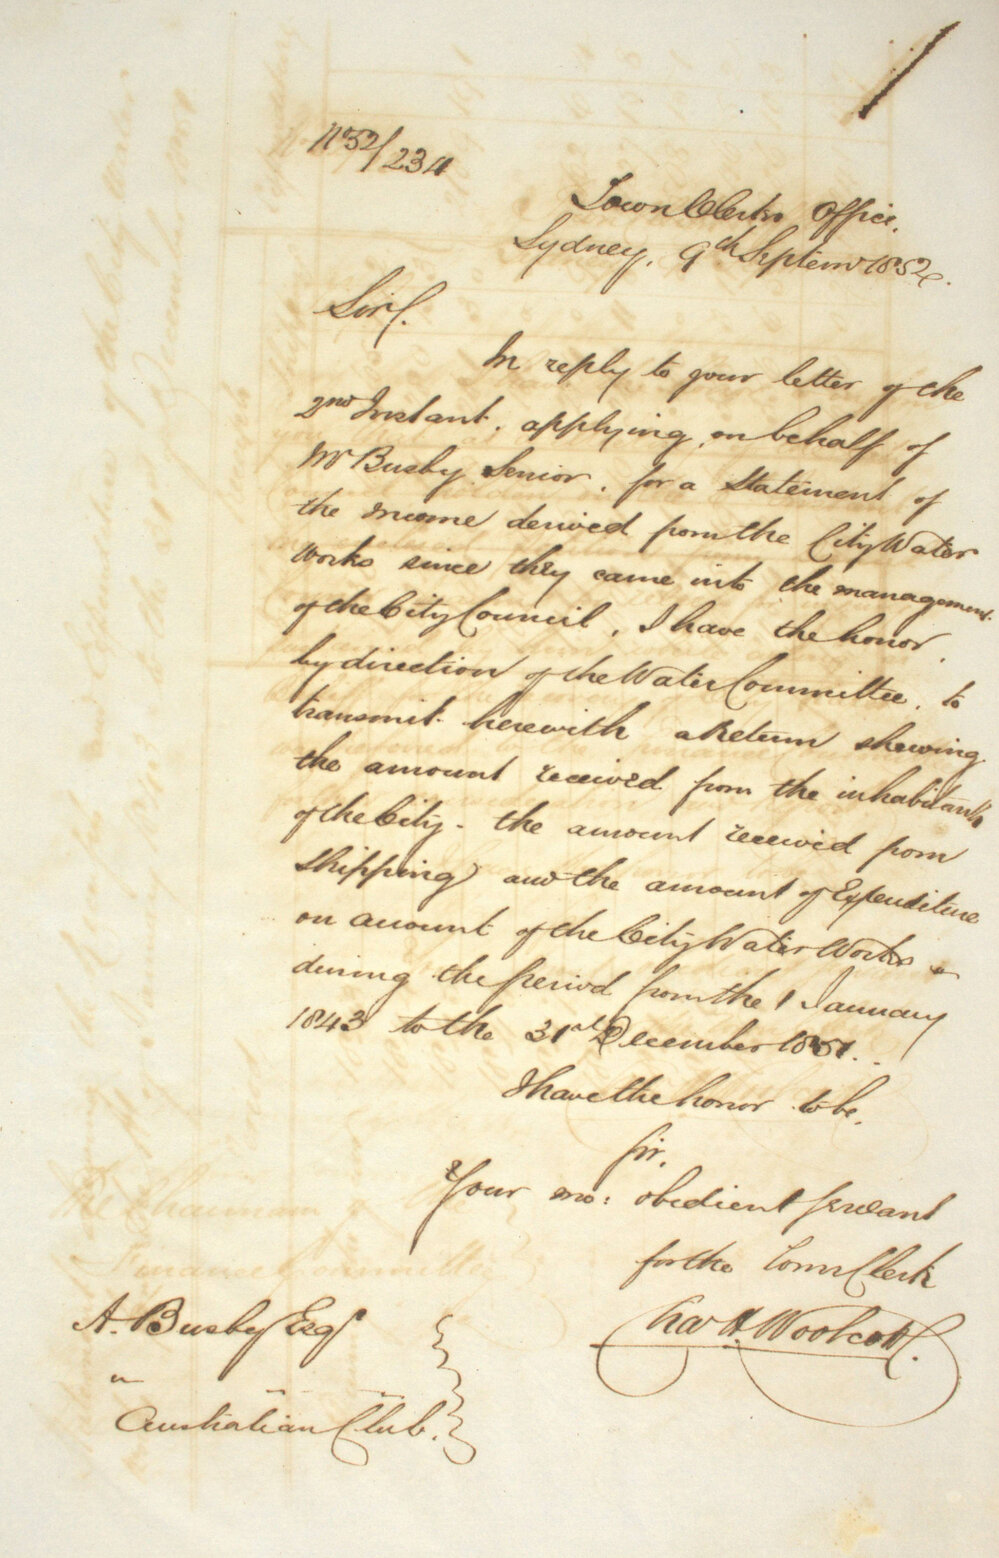 No 52/234
Town Clerks Office,
Sydney, 9th Septemr 1852.
Sir,
In reply to your letter of the
2nd Instant, applying, on behalf of
Mr Busby Senior, for a Statement of
the Income derived from the City Water
Works since they came into the management
of the City Council, I have the honor,
by direction of the Water Committee, to
transmit herewith a Return shewing
the amount received from the inhabitants
of the City - the amount received from
Shipping and the amount of Expenditure
on account of the City Water Works -
during the period from the 1 January
1843 to the 31st December 1851.
I have the honor to be,
Sir,
Your mo: obedient Servant
for the Town Clerk
Chas H. Woolcott.
A. Busby Esqr
Australian Club.